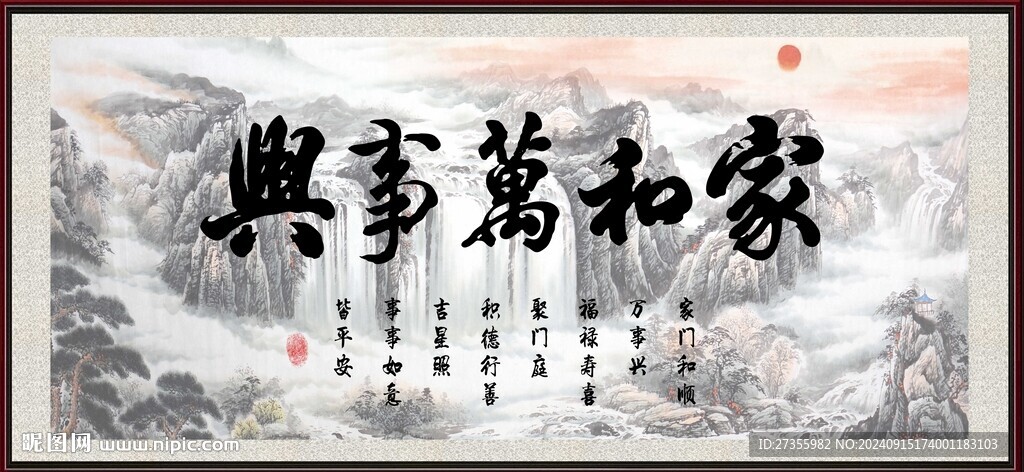 家和萬事興
家门和顺
万事兴
福禄寿喜
聚门庭
积德行善
吉星照
事事如意
皆平安
昵图网 www.nipic.com
ID:27355982 NO:20240915174001183103